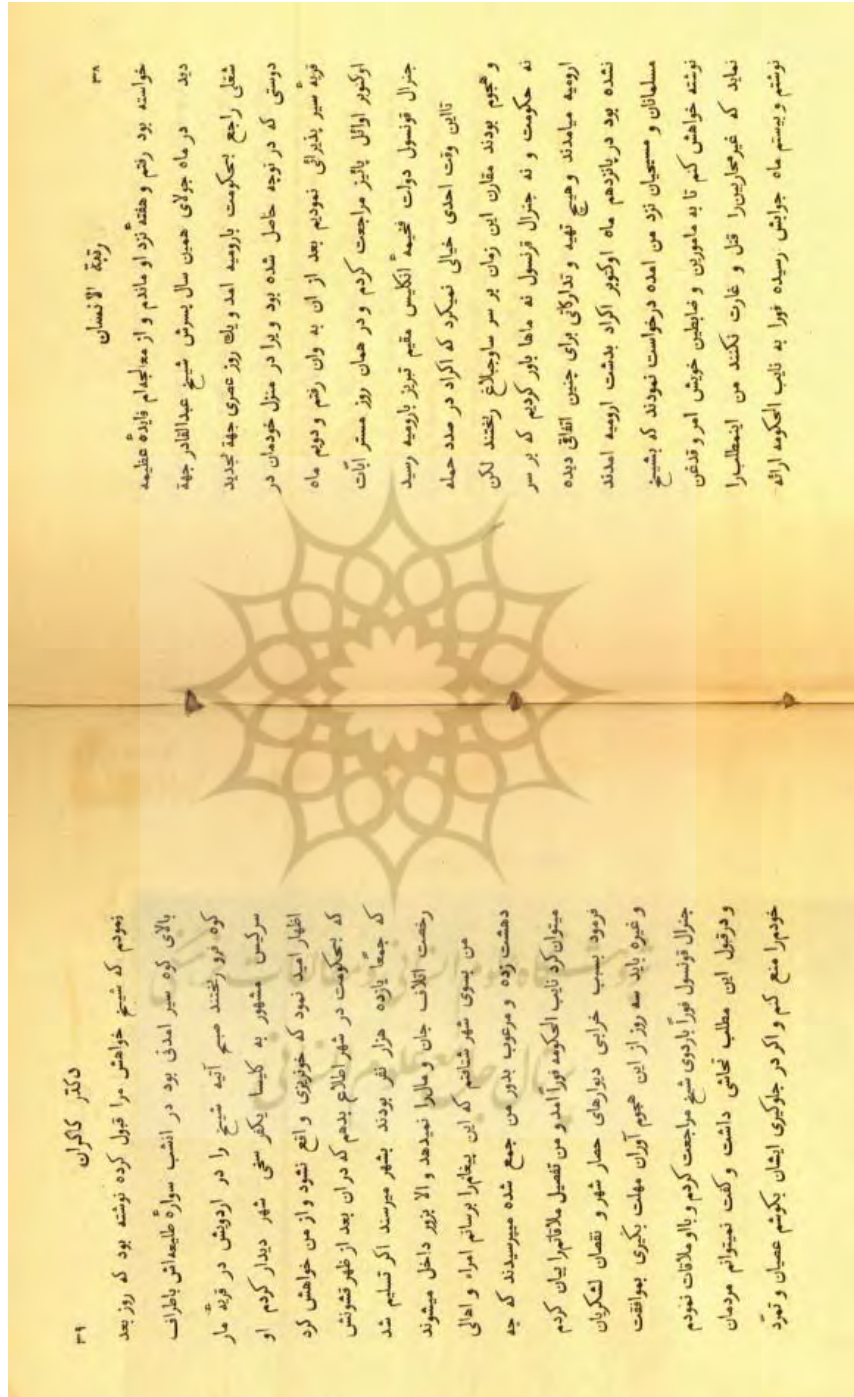 ۳۸
رتبة الانسان
خواسته بود رفتم و هفتهٔ نزد او ماندم و از معالجه‌ام فایدهٔ عظیمه
دید در ماه جولای همین سال بسرش شیخ عبدالقادر جهة
شغلی راجع بحکومت بارومیه امد و یك روز عصری جهة تجدید
دوستی که در نوچه حاصل شده بود ویرا در منزل خودمان در
قریهٔ سیر پذیرائی نمودیم بعد از ان به وان رفتم و دویم ماه
اوکتوبر اوائل پائیز مراجعت کردم و در همان روز مستر ابّات
جنرال قونسول دولت فخیمهٔ انگلیس مقیم تبریز بارومیه رسید
تااین وقت احدی خیالی نمیکرد که اکراد در صدد حمله
و هجوم بودند مقارن این زمان بر سر ساوجبلاغ ریختند لکن
نه حکومت و نه جنرال قونسول نه ماها باور کردیم که بر سر
ارومیه میامدند و هیچ تهیه و تدارکاتی برای چنین اتفاقی دیده
نشده بود در پانزدهم ماه اوکتوبر اکراد بدشت ارومیه امدند
مسلمانان و مسیحیان نزد من امده درخواست نمودند که بشیخ
نوشته خواهش کنم تا به مامورین و ضابطین خویش امر و قدغن
نماید که غیرمحاربین‌را قتل و غارت نکنند من اینمطلب‌را
نوشتم و بیستم ماه جوابش رسیده فورا به نایب الحکومه ارائه
۳۹
دکتر کاکران
نمودم که شیخ خواهش مرا قبول کرده نوشته بود که روز بعد
بالای کوه سیر امدنی بود در انشب سوارهٔ طلیعه‌اش باطراف
کوه فرو ریختند صبح آتیه شیخ را در اردویش در قریهٔ مار
سرکیس مشهور به کلیسا یکفرسخی شهر دیدار کردم او
اظهار امید نمود که خونریزی واقع نشود و از من خواهش کرد
که بحکومت در شهر اطلاع بدهم که در ان بعد از ظهر قشونش
که جمعًا یازده هزار نفر بودند بشهر میرسند اکر تسلیم شد
رخصت اتلاف جان و مال‌را نمیدهد و الا بزور داخل میشوند
من بسوی شهر شتافتم که این پیغام‌را برسانم امراء و اهالی
دهشت زده و مرعوب بدور من جمع شده میپرسیدند که چه
میتوان کرد نایب الحکومه فوراً آمد و من تفصیل ملاقاتم‌را بیان کردم
فرمود بسبب خرابی دیوارهای حصار شهر و نقصان لشکریان
و غیره باید سه روز از این هجوم آوران مهلت بکیری بموافقت
جنرال قونسول فوراً باردوی شیخ مراجعت کردم و بااو ملاقات نمودم
و درقبول این مطلب تحاشی داشت و کفت نمیتوانم مردمان
خودم‌را منع کنم و اکر در جلوکیری ایشان بکوشم عصیان و تمرّد